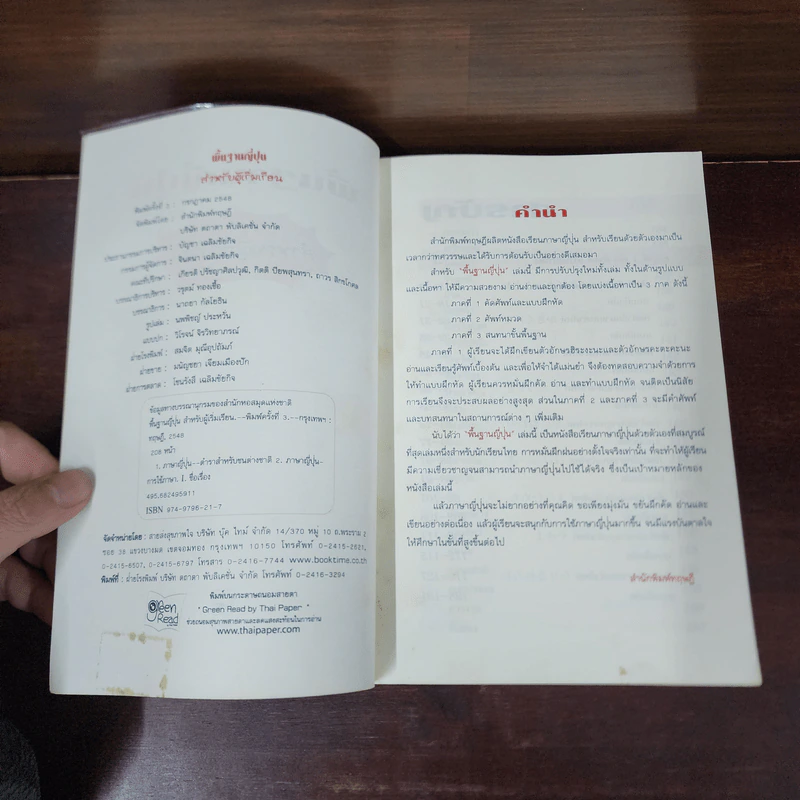 พื้นฐานญี่ปุ่น
สำหรับผู้เริ่มเรียน
พิมพ์ครั้งที่ 3 : กรกฎาคม 2548
จัดพิมพ์โดย : สำนักพิมพ์ทฤษฎี
บริษัท ดถาตา พับลิเคชั่น จำกัด
ประธานกรรมการบริหาร : บัญชา เฉลิมชัยกิจ
กรรมการผู้จัดการ : จินตนา เฉลิมชัยกิจ
คณะที่ปรึกษา : เกียรติ ปรัชญาศิลปวุฒิ, กิตติ ปิยพสุนทรา, ถาวร สิกขโกศล
บรรณาธิการบริหาร : วรุตม์ ทองเชื้อ
บรรณาธิการ : มาถยา กัลโยธิน
รูปเล่ม : นพพิชญ์ ประหวั่น
แบบปก : วิโรจน์ จิรวิทยาภรณ์
ฝ่ายโรงพิมพ์ : สมจิต มุณีอุปถัมภ์
ฝ่ายขาย : มนัญชยา เจียมเมืองปัก
ฝ่ายการตลาด : โชนรังสี เฉลิมชัยกิจ
ข้อมูลทางบรรณานุกรมของสำนักหอสมุดแห่งชาติ
พื้นฐานญี่ปุ่น สำหรับผู้เริ่มเรียน.--พิมพ์ครั้งที่ 3.--กรุงเทพฯ :
ทฤษฎี, 2548
208 หน้า
1. ภาษาญี่ปุ่น--ตำราสำหรับชนต่างชาติ 2. ภาษาญี่ปุ่น--
การใช้ภาษา. I. ชื่อเรื่อง
495.682495911
ISBN 974-9798-21-7
จัดจำหน่ายโดย : สายส่งสุขภาพใจ บริษัท บุ๊ค ไทม์ จำกัด 14/370 หมู่ 10 ถ.พระราม 2
ซอย 38 แขวงบางมด เขตจอมทอง กรุงเทพฯ 10150 โทรศัพท์ 0-2415-2621,
0-2415-6507, 0-2415-6797 โทรสาร 0-2416-7744 www.booktime.co.th
พิมพ์ที่ : ฝ่ายโรงพิมพ์ บริษัท ตถาตา พับลิเคชั่น จำกัด โทรศัพท์ 0-2416-3294
green Read
พิมพ์บนกระดาษถนอมสายตา
" Green Read by Thai Paper "
ช่วยถนอมสุขภาพสายตาและลดแสงสะท้อนในการอ่าน
www.thaipaper.com
คำนำ
สำนักพิมพ์ทฤษฎีผลิตหนังสือเรียนภาษาญี่ปุ่น สำหรับเรียนด้วยตัวเองมาเป็น
เวลากว่าทศวรรษและได้รับการต้อนรับเป็นอย่างดีเสมอมา
สำหรับ "พื้นฐานญี่ปุ่น" เล่มนี้ มีการปรับปรุงใหม่ทั้งเล่ม ทั้งในด้านรูปแบบ
และเนื้อหา ให้มีความสวยงาม อ่านง่ายและถูกต้อง โดยแบ่งเนื้อหาเป็น 3 ภาค ดังนี้
ภาคที่ 1 คัดศัพท์และแบบฝึกหัด
ภาคที่ 2 ศัพท์หมวด
ภาคที่ 3 สนทนาขั้นพื้นฐาน
ภาคที่ 1 ผู้เรียนจะได้ฝึกเขียนตัวอักษรฮิระงะนะและตัวอักษรคะตะคะนะ
อ่านและเรียนรู้ศัพท์เบื้องต้น และเพื่อให้จำได้แม่นยำ จึงต้องทดสอบความจำด้วยการ
ให้ทำแบบฝึกหัด ผู้เรียนควรหมั่นฝึกคัด อ่าน และทำแบบฝึกหัด จนติดเป็นนิสัย
การเรียนจึงจะประสบผลอย่างสูงสุด ส่วนในภาคที่ 2 และภาคที่ 3 จะมีคำศัพท์
และบทสนทนาในสถานการณ์ต่าง ๆ เพิ่มเติม
นับได้ว่า "พื้นฐานญี่ปุ่น" เล่มนี้ เป็นหนังสือเรียนภาษาญี่ปุ่นด้วยตัวเองที่สมบูรณ์
ที่สุดเล่มหนึ่งสำหรับนักเรียนไทย การหมั่นฝึกฝนอย่างตั้งใจจริงเท่านั้น ที่จะทำให้ผู้เรียน
มีความเชี่ยวชาญจนสามารถนำภาษาญี่ปุ่นไปใช้ได้จริง ซึ่งเป็นเป้าหมายหลักของ
หนังสือเล่มนี้
แล้วภาษาญี่ปุ่นจะไม่ยากอย่างที่คุณคิด ขอเพียงมุ่งมั่น ขยันฝึกคัด อ่านและ
เขียนอย่างต่อเนื่อง แล้วผู้เรียนจะสนุกกับการใช้ภาษาญี่ปุ่นมากขึ้น จนมีแรงบันดาลใจ
ให้ศึกษาในขั้นที่สูงขึ้นต่อไป
สำนักพิมพ์ทฤษฎี